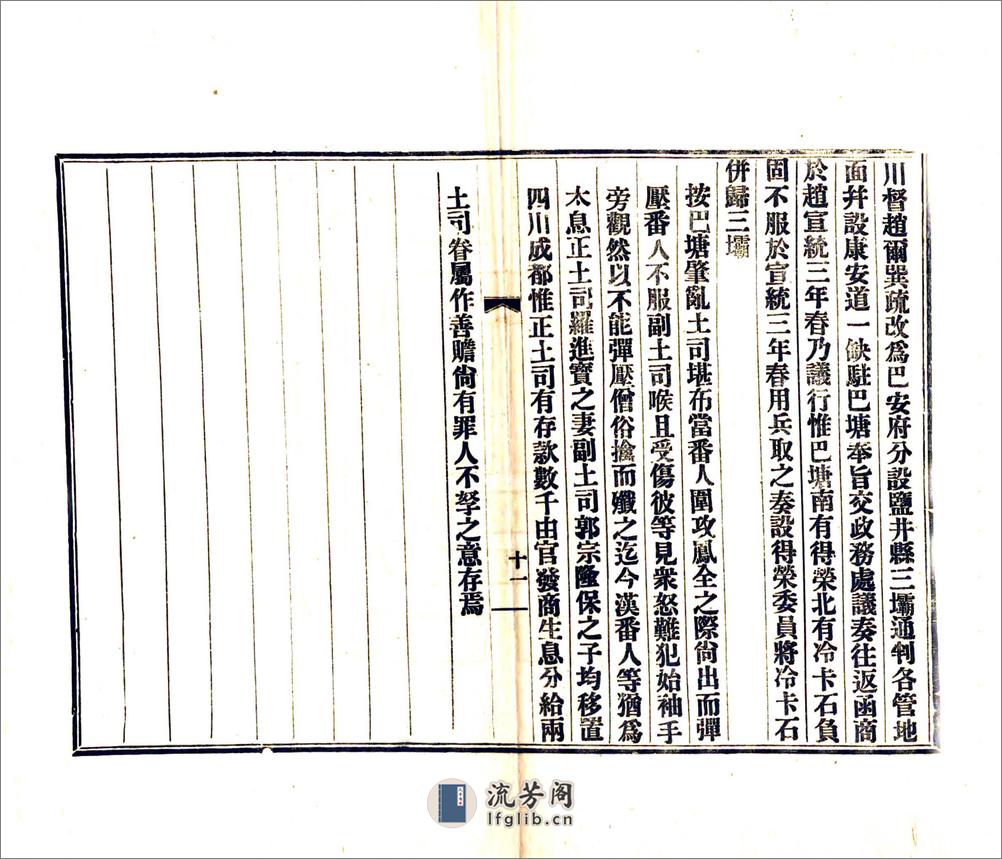 川督趙爾巽疏改爲巴安府分設鹽井縣三壩通判各管地
面幷設康安道一缺駐巴塘奉旨交政務處議奏往返函商
於趙宣統三年春乃議行惟巴塘南有得榮北有冷卡石負
固不服於宣統三年春用兵取之奏設得榮委員將冷卡石
併歸三壩
按巴塘肇亂土司堪布當番人圍攻鳳全之際尙出而彈
壓番人不服副土司喉且受傷彼等見衆怒難犯始袖手
旁觀然以不能彈壓僧俗擒而殲之迄今漢番人等猶爲
太息正土司羅進寶之妻副土司郭宗隆保之子均移置
四川成都惟正土司有存款數千由官發商生息分給兩
十一
土司眷屬作善贍尙有罪人不孥之意存焉
流芳阁
lfglib.cn